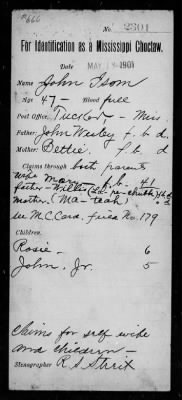 #666
No. 2301
For Identification as a Mississippi Choctaw.
Date MAY 13 1901
Name John Isom
Age 47 - Blood full
Post Office, Tuckors - Miss.
Father, John Wesley f. b. d.
Mother, Bettie f. b. d
Claims through both parents
wife Mary f. b. 41
father - Willis
mother. (Ma - teah)
see M.C. Card, field No. 179
Children.
Rosie - 6
John, Jr. 5
Claims for self wife
and children -
Stenographer R S Streit